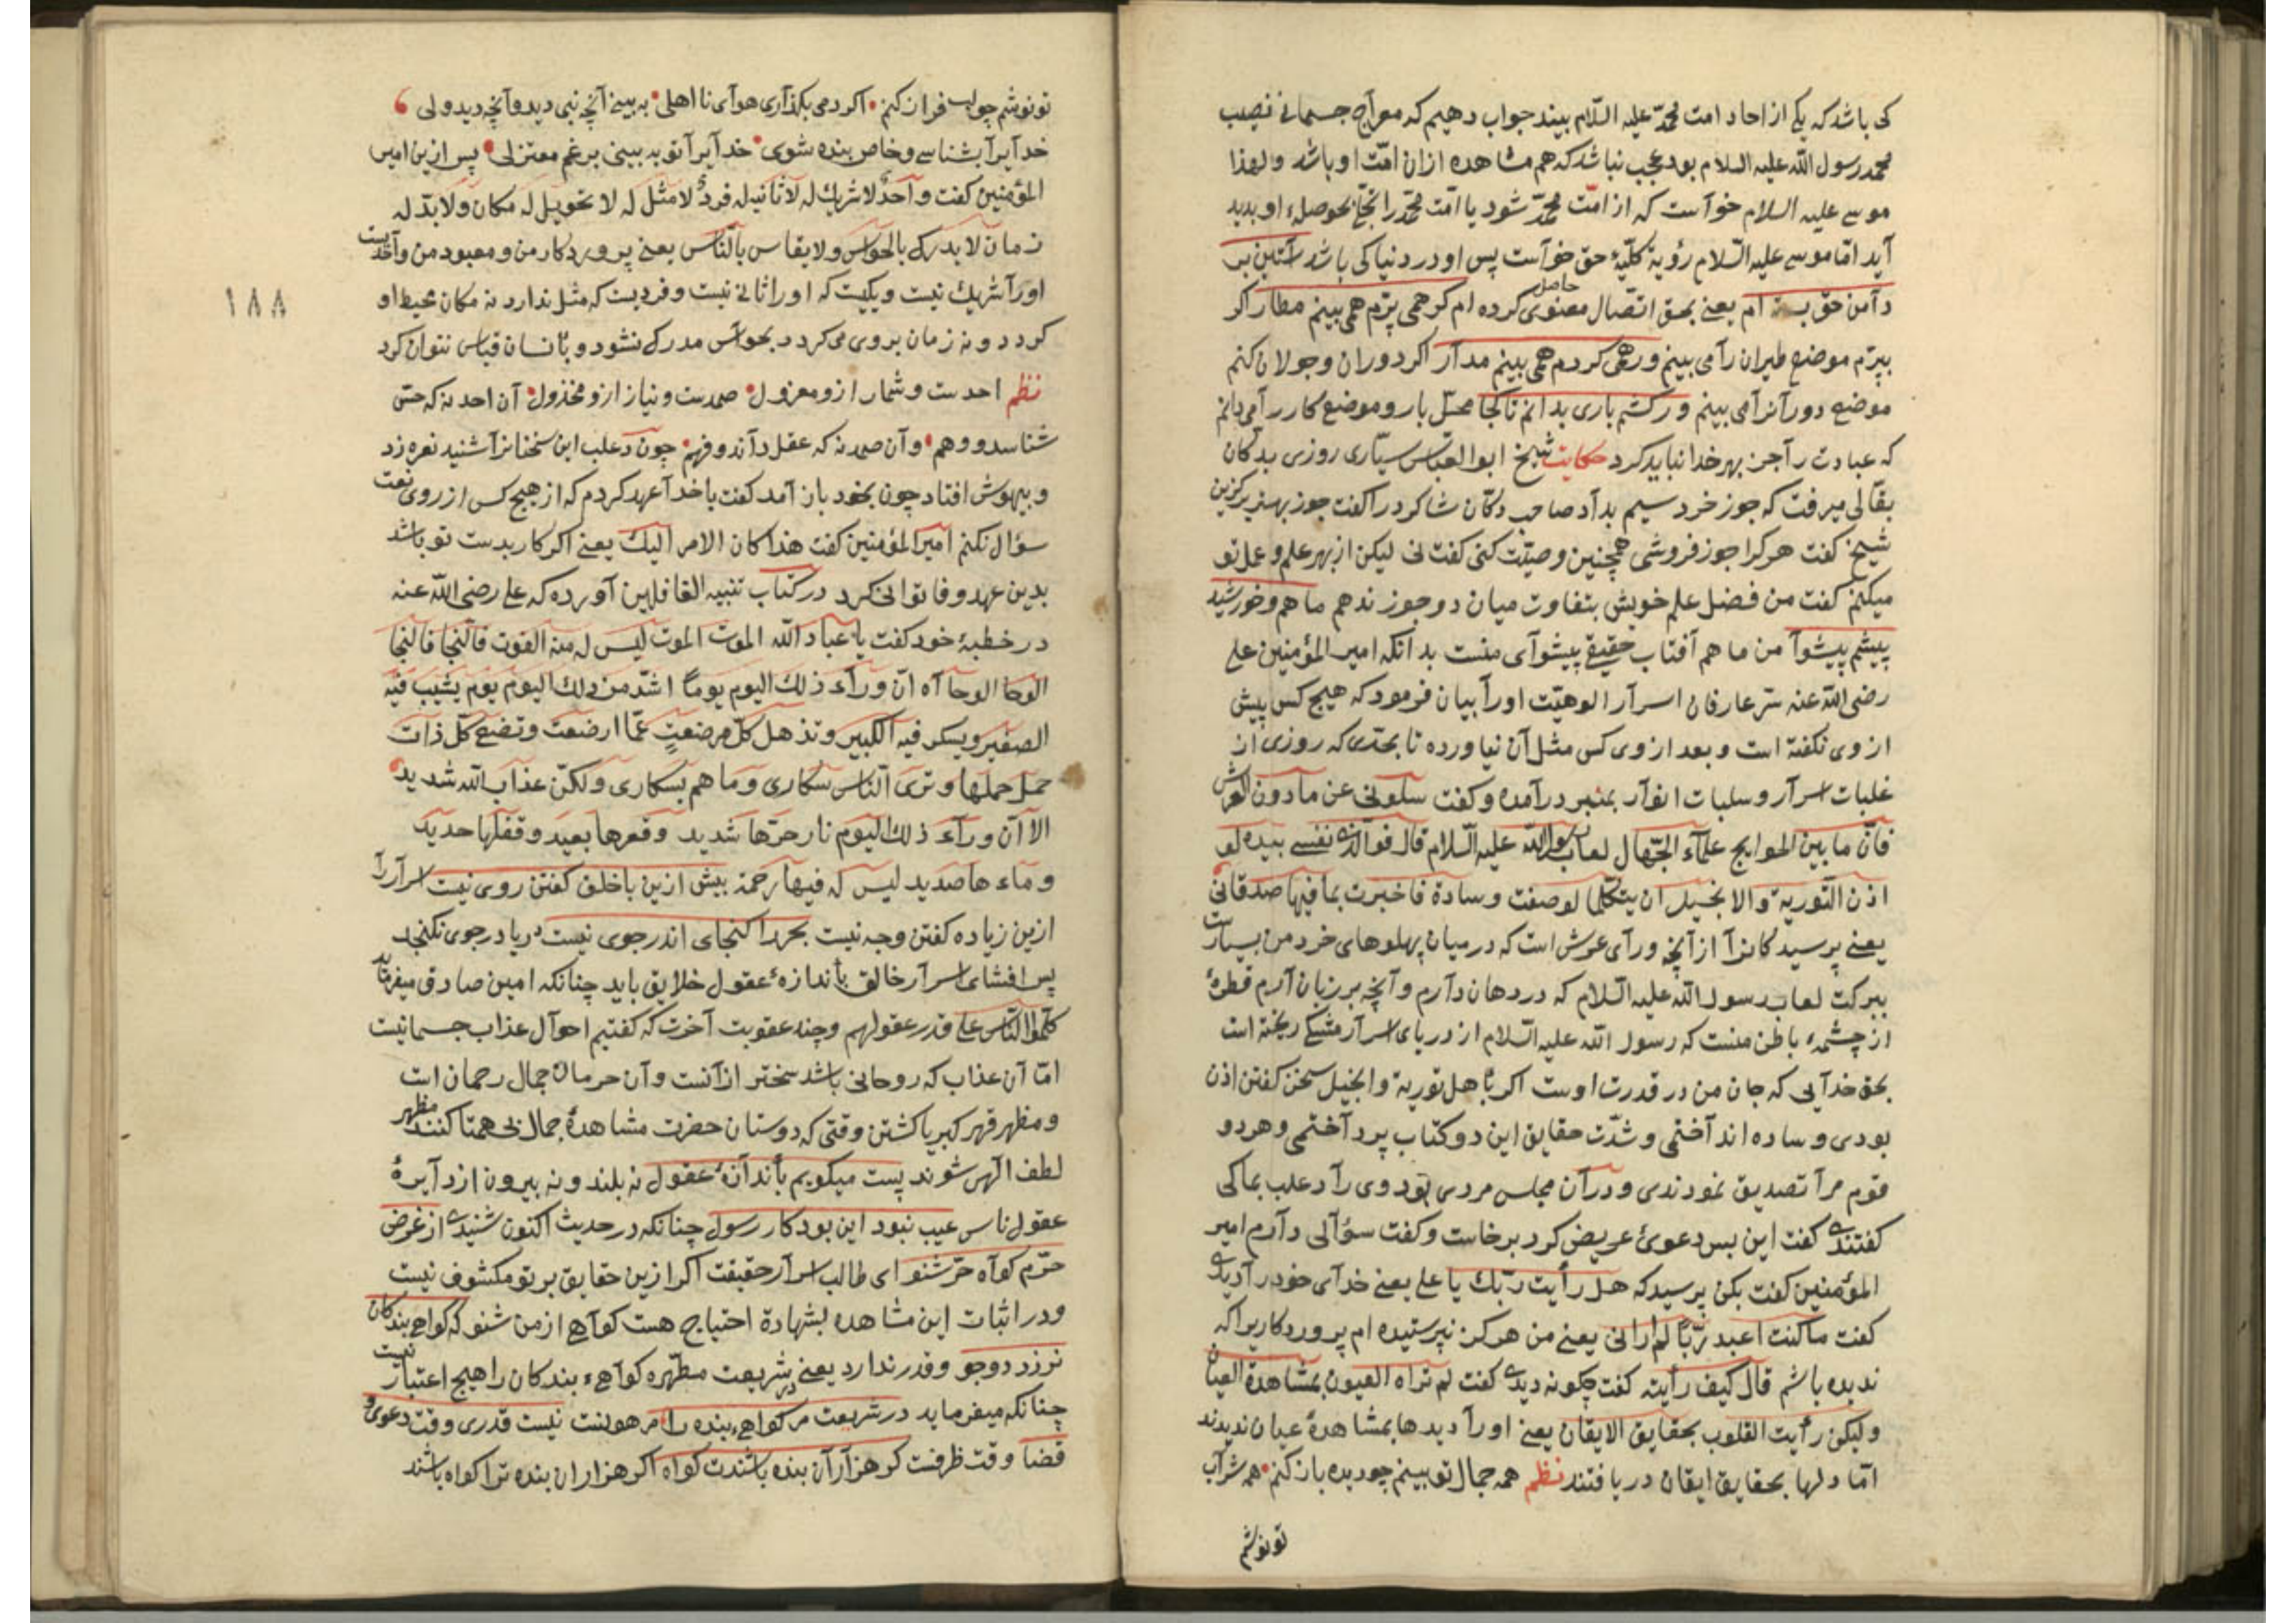 کی باشد که یکی از احاد امت محمّد علیه السّلام بیند جواب دهیم که معراج جسمانی نصیب
محمد رسول الله علیه السلام بود عجب نباشد که هم مشاهده ازان امّت او باشد و لهذا
موسی علیه السلام خواست که از امّت محمّد شود یا امّت محمّد را بحوصلهٔ او بدید
آید امّا موسی علیه السّلام رؤیة کلّیهٔ حق خواست پس او در دنیا کی باشد آستین بر
دامن حق بسته ام یعنی بحق اتّصال معنوی حاصل کرده ام کر همی پرّم همی بینم مطار اکر
بپرّم موضع طیران را می بینم ور همی کردم همی بینم مدار اکر دوران و جولان کنم
موضع دورانرا می بینم ور کشم باری بدانم تا کجا محلّ بار و موضع کار را می دانم
که عبادت را جز بهر خدا نباید کرد حکایت شیخ ابو العبّاس سیّاری روزی بدکان
بقالی میرفت که جوز خرد سیم بداد صاحب دکّان شاکرد را کفت جوز بهترین کزین
شیخ کفت هر کرا جوز فروشی همچنین وصیّت کنی کفت نی لیکن از بهر علم و عمل تو
میکنم کفت من فضل علم خویش بتفاوت میان دو جوز ندهم ماهم و خورشید
پیشم پیشوا من ماهم آفتاب حقیقی پیشوای منست بدانکه امیر المؤمنین علی
رضی الله عنه سرّ عارفان اسرار الوهیّت اورا بیان فرمود که هیچ کس پیش
از وی نکفته است و بعد از وی کس مثل آن نیاورده تا بحدّی که روزی از
غلبات اسرار و سلبات انوار بمنبر درآمده و کفت سلونی عن ما دون العرش
فانّ ما بین الجوانح علماء الجّهال لعاب رسول الله علیه السّلام قال فو الّذی نفسی بیده لو
اذن التّوریة و الانجیل ان یتکلّما لوضعت وسادة فاخبرت بما فیها صدقانی
یعنی پرسید کانرا از آنچه ورای عرش است که در میان پهلوهای خرد من بسیارست
ببرکت لعاب رسول الله علیه السّلام که در دهان دارم و آنچه بر زبان آرم قطرهٔ
از چشمهٔ باطن منست که رسول الله علیه السّلام از دریای اسرار ریخته است
بحق خدایی که جان من در قدرت اوست اکر باهل توریة و انجیل سخن کفتن اذن
بودی وساده انداختمی و شدّت حقایق این دو کتاب پرداختمی و هر دو
قوم مرا تصدیق نمودندی و در آن مجلس مردی بود وی را دعلب
کفتندی کفت این بس دعوئ عریض کرد برخاست و کفت سؤالی دارم امیر
المؤمنین کفت بکن پرسید که هل رأیت ربّك یا علی یعنی خدای خود را دیدی
کفت ما کنت اعبد ربّا لم ارانی یعنی من هرکز نپرستیده ام پروردکاریرا که
ندیده باشم قال کیف رأیته کفت چکونه دیدی کفت لم تراه العیون بمشاهدة العیان
ولیکن رأیت القلوب بحقایق الایقان یعنی اورا دیدها بمشاهدهٔ عیان ندیدند
امّا دلها بحقایق ایقان دریافتند نظم همه جمال تو بینم چو دیده باز کنم همه شراب
تو نوشم
تو نوشم چو لب فراز کنم اکر دمی بکذاری هوای نا اهلی به بینی آنچه نبی دید و آنچه دید ولی
خدایرا بشناسی و خاص بنده شوی خدایرا تو به بینی برغم معتزلی پس ازین امیر
المؤمنین کفت واحدٌ لا شریك له لا ثانی له فردٌ لا مثل له لا تحویل له مکان ولا بدّ له
زمان لا یدرك بالحواس ولا یقاس بالنّاس یعنی پروردکار من و معبود من واحدست
اورا شریك نیست و یکیست که اورا ثانی نیست و فردیست که مثل ندارد نه مکان محیط او
کردد و نه زمان بر وی می کردد بحواس مدرك نشود و بانسان قیاس نتوان کرد
نظم احدست و شمار ازو معزول صمدست و نیاز ازو مخذول آن احد نه که حس
شناسد و وهم و آن صمد نه که عقل داند و فهم چون دعلب این سخنانرا شنید نعره زد
و بیهوش افتاد چون بخود باز آمد کفت با خدا عهد کردم که از هیچ کس از روی تعنت
سؤال نکنم امیر المؤمنین کفت هذا کان الامر الیك یعنی اکر کار بدست تو باشد
بدین عهد وفا توانی کرد در کتاب تنبیه الغافلین آورده که علی رضی الله عنه
در خطبهٔ خود کفت یا عباد الله الموت الموت لیس له منه الفوت فالنجا فالنجا
الوحا الوحا آه انّ وراء ذلك الیوم یوماً اشدّ من ذلك الیوم یوم یشیب فیه
الصغیر و یسکر فیه الکبیر و تذهل کلّ مرضعةٍ عمّا ارضعت و تضع کلّ ذات
حمل حملها و تری النّاس سکاری و ما هم بسکاری ولکنّ عذاب الله شدید
الا انّ وراء ذلك الیوم نار حرّها شدید وقعرها بعید و قفلها حدید
و ماءها صدید لیس له فیها رحمة بیش ازین با خلق کفتن روی نیست اسرار را
ازین زیاده کفتن وجه نیست بحر را کنجای اندر جوی نیست دریا در جوی نکنجد
پس افشای اسرار خالق باندازهٔ عقول خلایق باید چنانکه امین صادق میفرماید
کلّموا النّاس علی قدر عقولهم و چند عقوبت آخرت که کفتیم احوال عذاب جسمانیست
امّا آن عذاب که روحانی باشد سختر ازانست و آن حرمان جمال رحمان است
و مظهر قهر کبریا کشتن وقتی که دوستان حضرت مشاهدهٔ جمال بی همتا کنند مظهر
لطف الهی شوند پست میکویم باندازهٔ عقول نه بلند و نه بیرون از دایرهٔ
عقول ناس عیب نبود این بود کار رسول چنانکه در حدیث اکنون شنیدی از غرض
حرّم کواه حرّ شنو ای طالب اسرار حقیقت اکر ازین حقایق بر تو مکشوف نیست
و در اثبات این مشاهده بشهادة احتیاج هست کواهی از من شنو که کواهی بندکان
نرزد دو جو و قدر ندارد یعنی در شریعت مطهّره کواهیء بندکان را هیچ اعتبار نیست
چنانکه میفرماید در شریعت مر کواهیء بنده را نیست قدری وقت دعوی و
قضا وقت ظرفت کر هزاران بنده باشندت کواه اکر هزاران بنده ترا کواه باشند
١٨٨